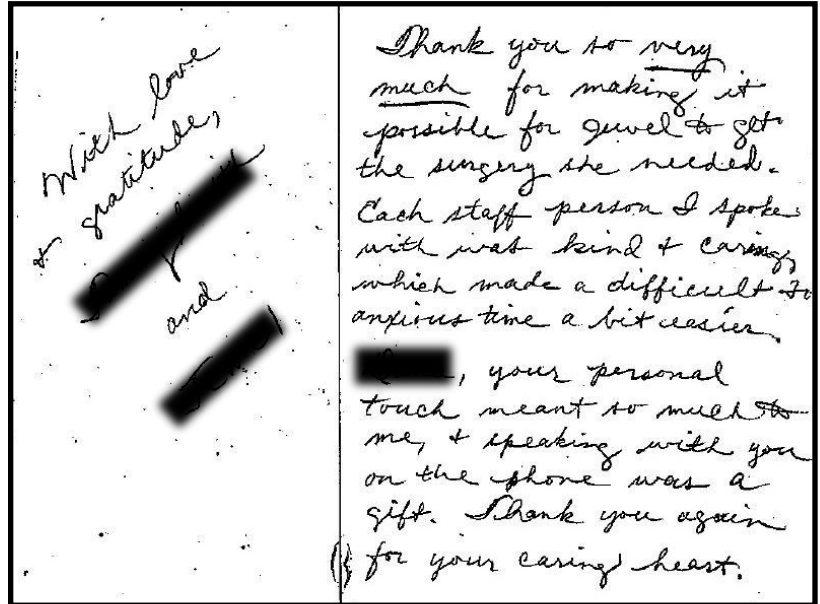 Thank you so very
much for making it
possible for Jewel to get
the surgery she needed.
Each staff person I spoke
with was kind & caring,
which made a difficult &
anxious time a bit easier.
, your personal
touch meant so much to
me, & speaking with you
on the phone was a
gift. Thank you again
for your caring heart.
With love
& gratitude,
and